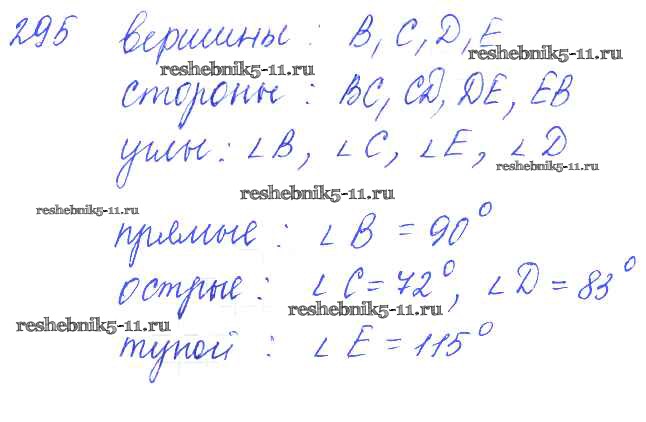 295 вершины: B, C, D, E
reshebnik5-11.ru
reshebnik5-11.ru
стороны: BC, CD, DE, EB
углы: ∠B, ∠C, ∠E, ∠D
reshebnik5-11.ru
reshebnik5-11.ru
reshebnik5-11.ru
прямые: ∠B = 90°
острые: ∠C = 72°, ∠D = 83°
reshebnik5-11.ru
reshebnik5-11.ru
тупой: ∠E = 115°